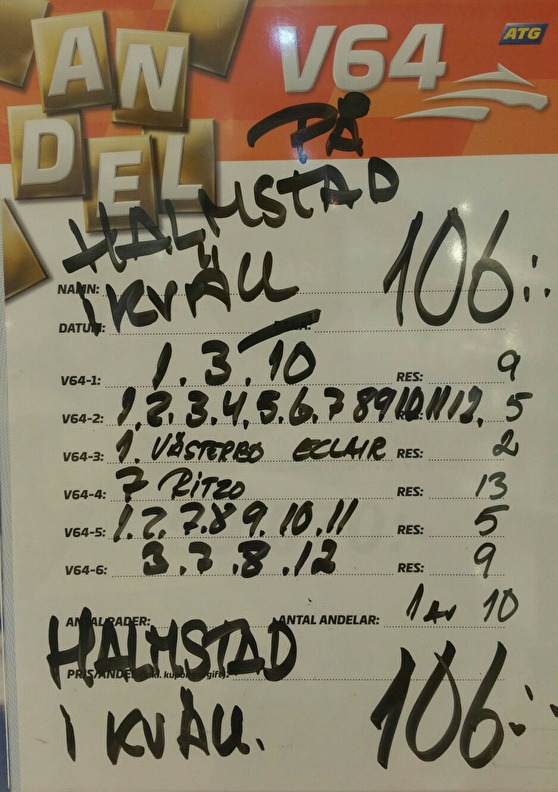 ANDEL V64 ATG
PÅ
HALMSTAD
NAMN: I KVÄLL 106:-
DATUM:
V64-1: 1.3.10 RES: 9
V64-2: 1.2.3.4.5.6.7 8 9 10 11 12. 5
V64-3: 1. VÄSTERBO ECLAIR RES: 2
V64-4: 7 RITZO RES: 13
V64-5: 1.2.7.8 9.10.11 RES: 5
V64-6: 3.7.8.12 RES: 9
ANTAL RADER: ANTAL ANDELAR: 1 AV 10
HALMSTAD
PRIS/ANDEL
I KVÄLL. 106:-